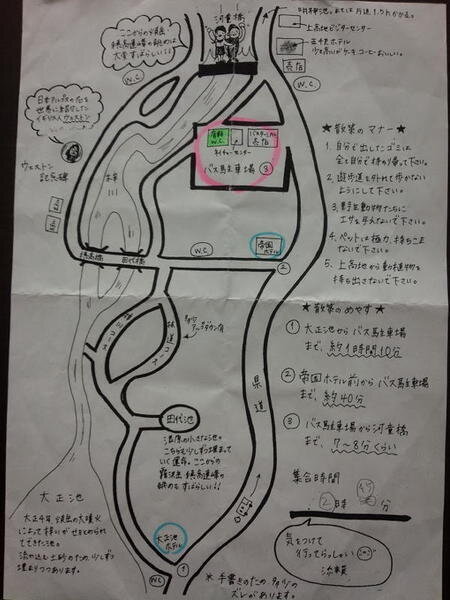 河童橋
ここからの焼岳
穂高連峰の眺めは
大変すばらしい!!
W.C.
上高地ビジターセンター
五千尺ホテル
売店
W.C.
日本アルプスの存在を
世界に紹介した
イギリス人ウェストン
ウェストン
記念碑
梓川
有料
W.C.
バスターミナル
売店
ネイチャーセンター
バス駐車場 ③
W.C.
帝国
ホテル
②
穂高橋
田代橋
梓川コース
林道コース
多少
アップダウン有
県道
田代池
湿原の小さな池。
こちらも少しずつ埋まって
いく運命。ここからの
霞沢岳 穂高連峰の
眺めもすばらしい!!
大正池
大正4年 焼岳の大噴火
によって梓川がせきとめられて
できた池。
流れ込む土砂のため少しずつ
埋まりつつあります。
大正池
ホテル
①
WC
※手書きのため多少の
ズレがあります。
★散策のマナー★
1. 自分で出したゴミは
全て自分で持ち帰って下さい。
2. 遊歩道を外れて歩かない
ようにして下さい。
3. 野生動物たちに
エサを与えないで下さい。
4. ペットは極力、持ちこま
ないで下さい。
5. 上高地から動植物を
持ち出さないで下さい。
★散策のめやす★
① 大正池からバス駐車場
まで、約1時間10分
② 帝国ホテル前からバス駐車場
まで、約40分
③ バス駐車場から河童橋
まで、7〜8分くらい
集合時間
2時15分
気をつけて
行ってらっしゃい